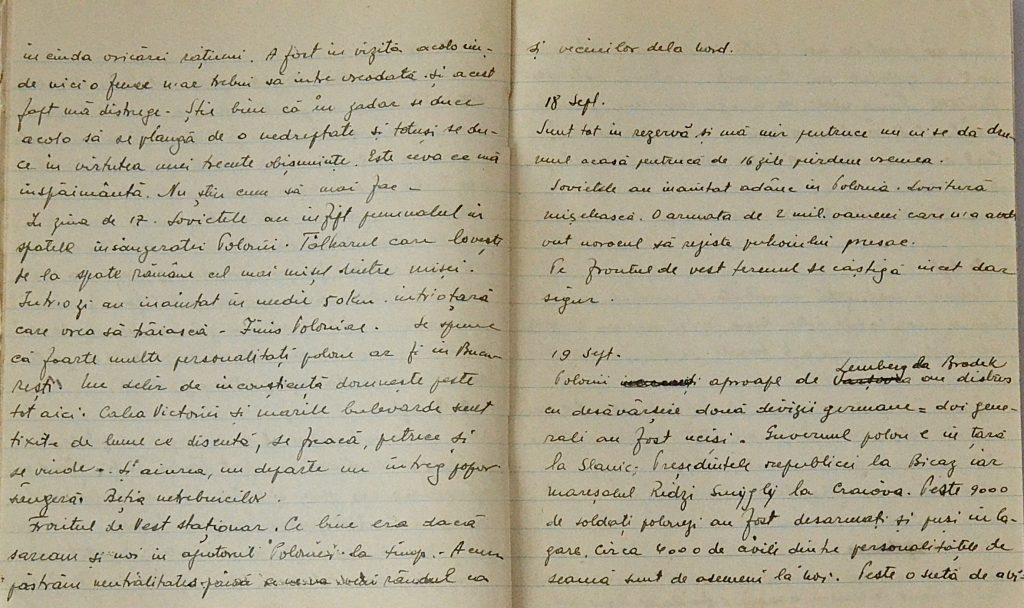 în ciuda oricărei rațiuni. A fost în vizită acolo un-
de nici o femee n-ar trebui să intre vreodată. Și acest
fapt mă distruge. Știe bine că în zadar se duce
acolo să se plângă de o nedreptate și totuși se du-
ce în virtutea unei trecute obișnuințe. Este ceva ce mă
înspăimântă. Nu știu cum să mai fac -
În ziua de 17. Sovietele au înfipt pumnalul în
spatele însângeratei Polonii. Tâlharul care lovește
de la spate rămâne cel mai mișel dintre mișei.
Într-o zi au înaintat în medie 50 km. într-o țară
care vrea să trăiască - Finis Poloniae. Se spune
că foarte multe personalități polone ar fi în Bucu-
rești. Un delir de inconștiență domnește peste
tot aici. Calea Victoriei și marile bulevarde sunt
tixite de lume ce discută, se joacă, petrece și
se vinde. Și aiurea, nu departe un întreg popor
sângeră. Beția netrebnicilor.
Frontul de Vest staționar. Ce bine era dacă
săream și noi în ajutorul Poloniei la timp. - Acum
păstrăm neutralitatea până ce ne va veni rândul ca
și vecinilor dela nord.
18 Sept.
Sunt tot în rezervă și mă mir pentruce nu ni se dă dru-
mul acasă pentrucă de 16 zile pierdem vremea.
Sovietele au înaintat adânc în Polonia. Lovitură
mișelească. O armată de 2 mil. oameni care n-a avut
norocul să reziste puhoiului
Pe frontul de vest terenul se câștigă încet dar
sigur.
19 Sept.
Polonii aproape de Lemberg da Brodek au distrus
cu desăvârșire două divizii germane = doi gene-
rali au fost uciși. Guvernul polon e în țară
la Slanic; Președintele republicei la Bicaz iar
mareșalul Ridzi Smigly la Craiova. Peste 9000
de soldați polonezi au fost desarmați și puși în la-
găre. Circa 4000 de civili dintre personalitățile de
seamă sunt de asemeni la noi. Peste o sută de avi-